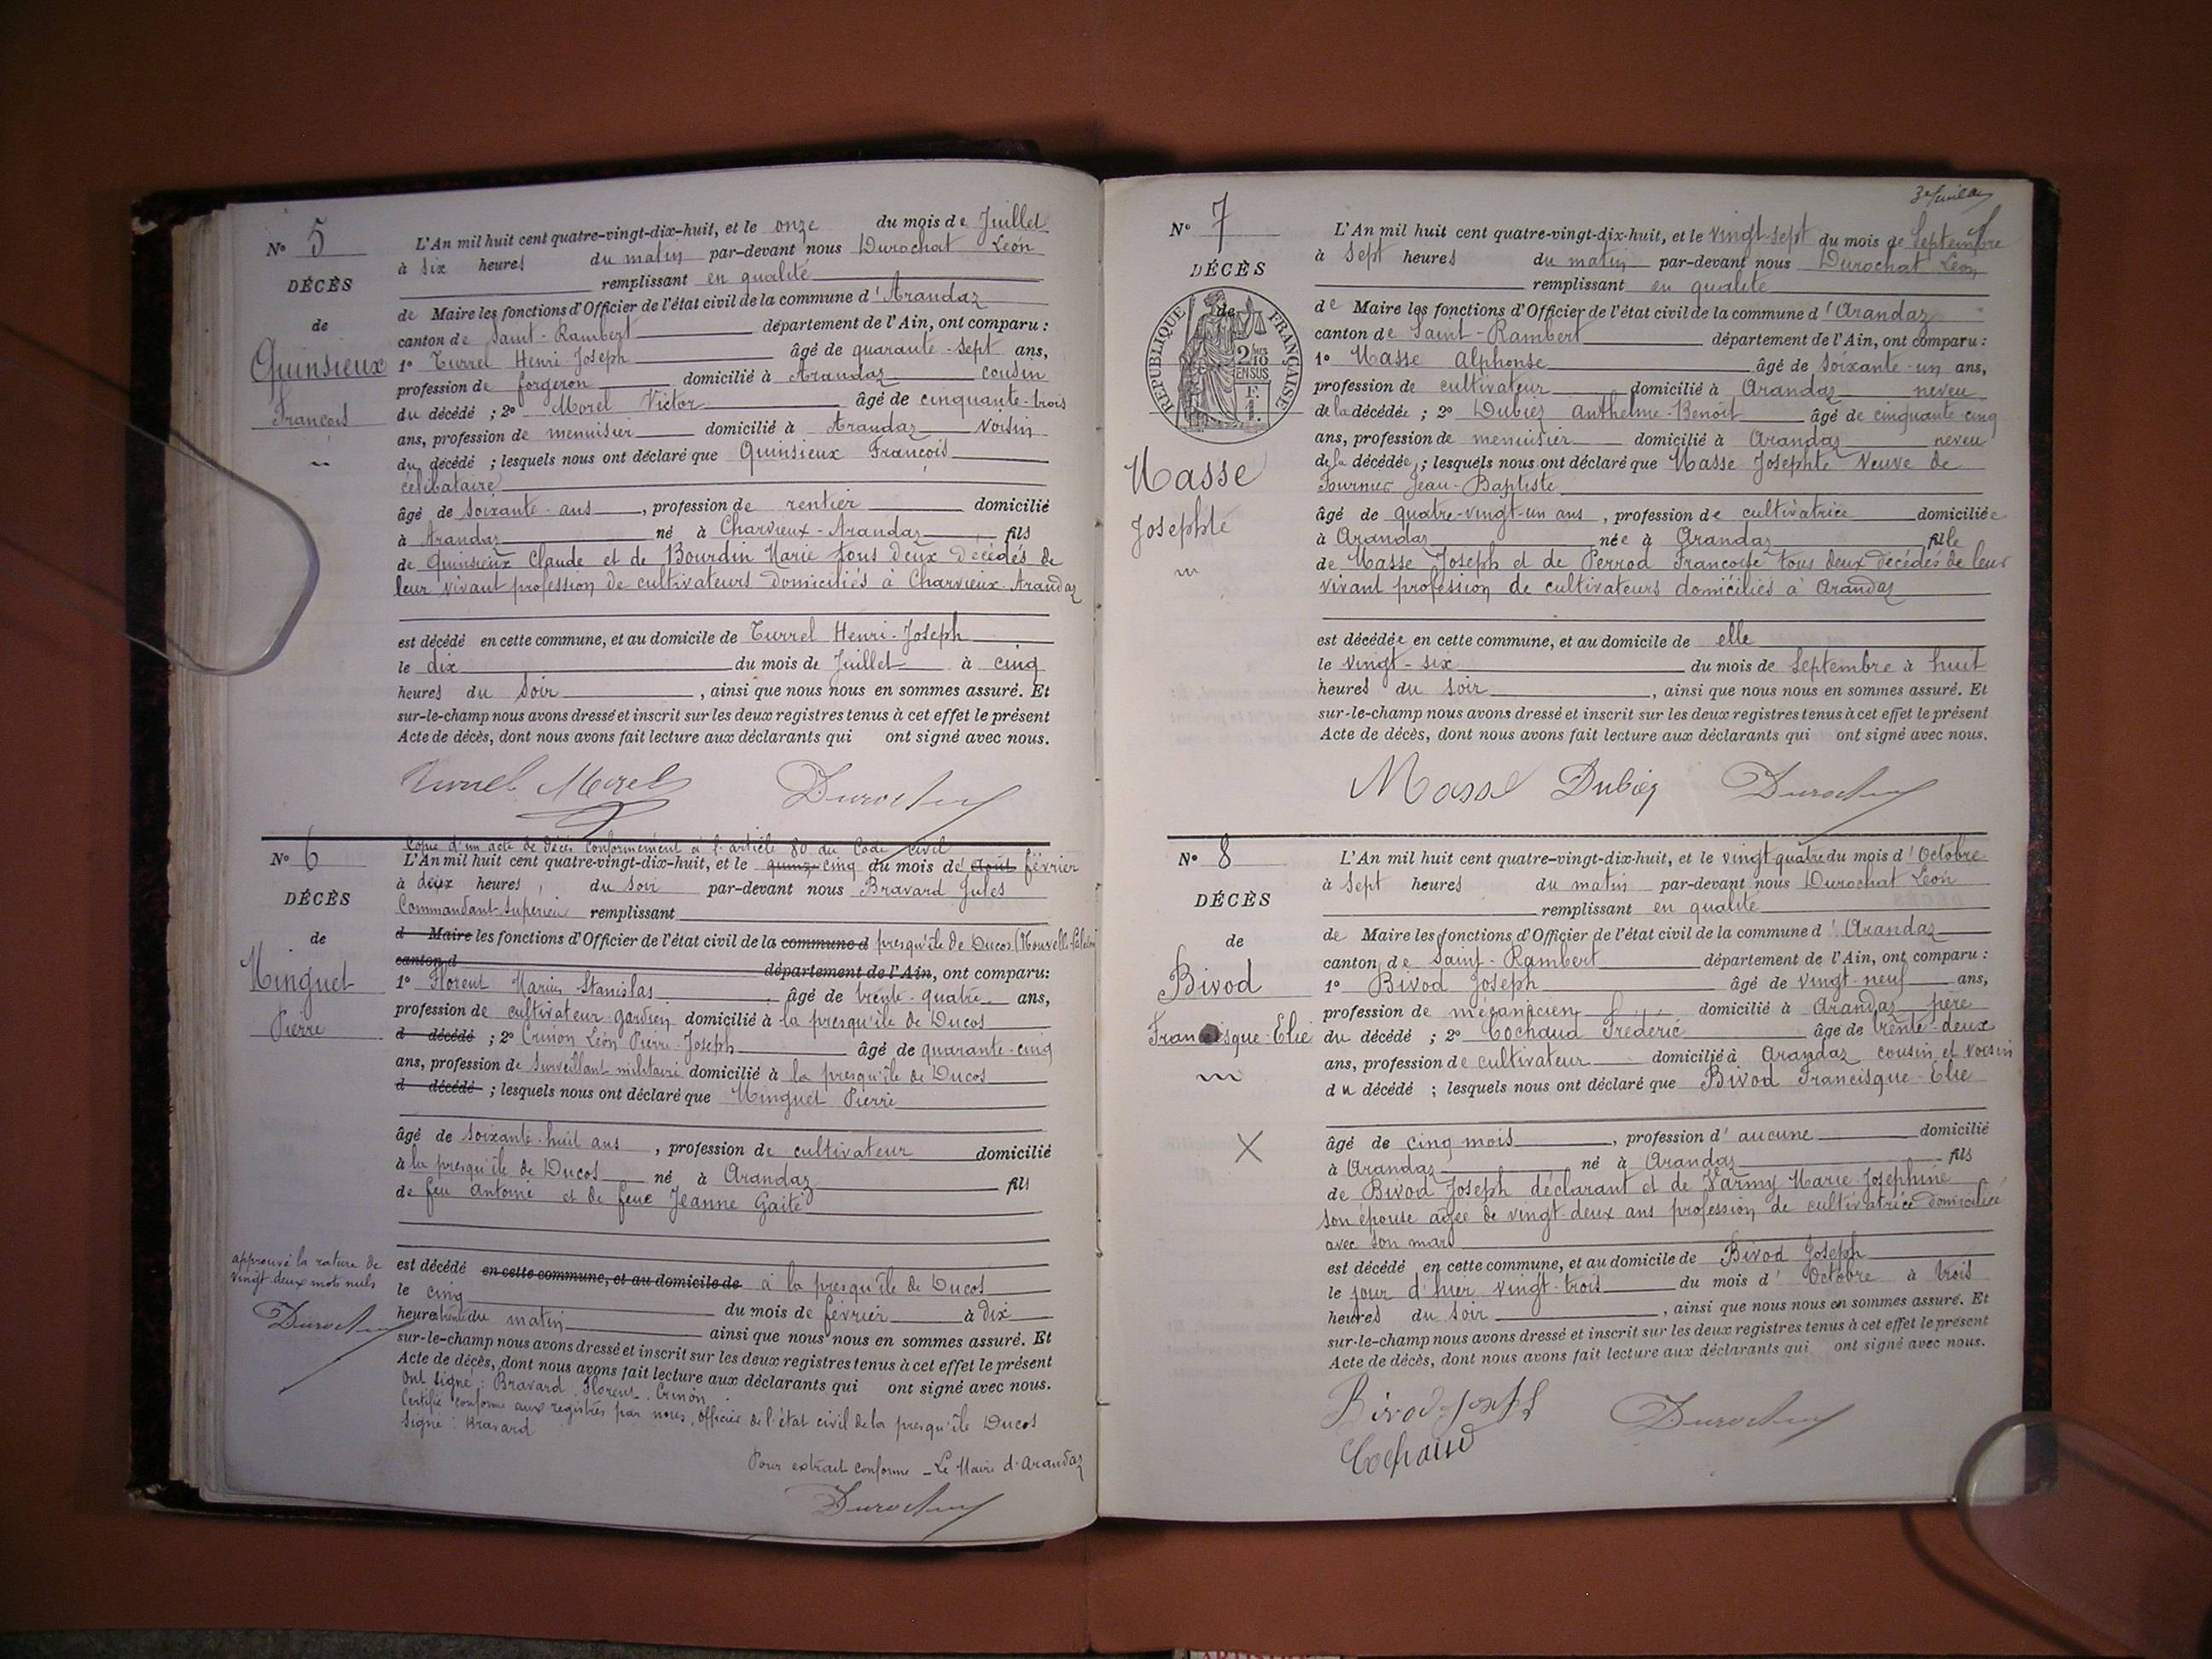 N° 5
DÉCÈS
de
Quinsieux
François
L'An mil huit cent quatre-vingt-dix-huit, et le onze du mois de Juillet
à six heures du matin par-devant nous Durochat Léon
remplissant en qualité
de Maire les fonctions d'Officier de l'état civil de la commune d'Arandaz
canton de Saint-Rambert département de l'Ain, ont comparu :
1° Turrel Henri-Joseph âgé de quarante-sept ans,
profession de forgeron domicilié à Arandaz cousin
du décédé ; 2° Morel Victor âgé de cinquante-trois
ans, profession de menuisier domicilié à Arandaz voisin
du décédé ; lesquels nous ont déclaré que Quinsieux François
célibataire
âgé de soixante-ans, profession de rentier domicilié
à Arandaz né à Charvieux-Arandaz fils
de Quinsieux Claude et de Bourdin Marie tous deux décédés de
leur vivant profession de cultivateurs domiciliés à Charvieux-Arandaz
est décédé en cette commune, et au domicile de Turrel Henri-Joseph
le dix du mois de Juillet à cinq
heures du soir, ainsi que nous nous en sommes assuré. Et
sur-le-champ nous avons dressé et inscrit sur les deux registres tenus à cet effet le présent
Acte de décès, dont nous avons fait lecture aux déclarants qui ont signé avec nous.
Turrel Morel Durochat
N° 6
DÉCÈS
de
Minguet
Pierre
Copie d'un acte de décès conformément à l'article 80 du Code civil
L'An mil huit cent quatre-vingt-dix-huit, et le quinze cinq du mois de Août février
à deux heures, du soir par-devant nous Bravard Jules
Commandant-Supérieur remplissant
d Maire les fonctions d'Officier de l'état civil de la commune d presqu'île de Ducos (Nouvelle-Calédonie)
canton d département de l'Ain, ont comparu:
1° Florent Marius Stanislas âgé de trente-quatre ans,
profession de cultivateur-gardien domicilié à la presqu'île de Ducos
d décédé ; 2° Crinon Léon Pierre-Joseph âgé de quarante-cinq
ans, profession de surveillant militaire domicilié à la presqu'île de Ducos
d décédé ; lesquels nous ont déclaré que Minguet Pierre
âgé de soixante-huit ans, profession de cultivateur domicilié
à la presqu'île de Ducos né à Arandaz fils
de feu Antoine et de feue Jeanne Gaite
est décédé en cette commune, et au domicile de à la presqu'île de Ducos
le cinq du mois de février à dix
heures trente du matin ainsi que nous nous en sommes assuré. Et
sur-le-champ nous avons dressé et inscrit sur les deux registres tenus à cet effet le présent
Acte de décès, dont nous avons fait lecture aux déclarants qui ont signé avec nous.
Ont signé : Bravard, Florent, Crinon
Certifié conforme aux registres par nous, Officier de l'état civil de la presqu'île Ducos
Signé : Bravard
approuvé la rature de
vingt deux mots nuls
Durochat
Pour extrait conforme - Le Maire d'Arandaz
Durochat
N° 7
DÉCÈS
de
RÉPUBLIQUE FRANÇAISE
2/10 EN SUS
Masse
Josephte
L'An mil huit cent quatre-vingt-dix-huit, et le vingt-sept du mois de Septembre
à sept heures du matin par-devant nous Durochat Léon
remplissant en qualité
de Maire les fonctions d'Officier de l'état civil de la commune d'Arandaz
canton de Saint-Rambert département de l'Ain, ont comparu :
1° Masse Alphonse âgé de soixante-un ans,
profession de cultivateur domicilié à Arandaz neveu
de la décédée ; 2° Dubiez Anthelme-Benoit âgé de cinquante cinq
ans, profession de menuisier domicilié à Arandaz neveu
de la décédée ; lesquels nous ont déclaré que Masse Josephte Veuve de
Fournier Jean-Baptiste
âgé de quatre-vingt-un ans, profession de cultivatrice domiciliée
à Arandaz née à Arandaz fille
de Masse Joseph et de Perrod Françoise tous deux décédés de leur
vivant profession de cultivateurs domiciliés à Arandaz
est décédée en cette commune, et au domicile de elle
le vingt-six du mois de Septembre à huit
heures du soir, ainsi que nous nous en sommes assuré. Et
sur-le-champ nous avons dressé et inscrit sur les deux registres tenus à cet effet le présent
Acte de décès, dont nous avons fait lecture aux déclarants qui ont signé avec nous.
Masse Dubiez Durochat
N° 8
DÉCÈS
de
Bivod
Francisque-Elie
L'An mil huit cent quatre-vingt-dix-huit, et le vingt-quatre du mois d'Octobre
à sept heures du matin par-devant nous Durochat Léon
remplissant en qualité
de Maire les fonctions d'Officier de l'état civil de la commune d'Arandaz
canton de Saint-Rambert département de l'Ain, ont comparu :
1° Bivod Joseph âgé de vingt-neuf ans,
profession de mécanicien domicilié à Arandaz père
du décédé ; 2° Cochaud Frédéric âgé de trente-deux
ans, profession de cultivateur domicilié à Arandaz cousin et voisin
du décédé ; lesquels nous ont déclaré que Bivod Francisque-Elie
âgé de cinq mois, profession d'aucune domicilié
à Arandaz né à Arandaz fils
de Bivod Joseph déclarant et de Varmy Marie-Josephine
son épouse agée de vingt-deux ans profession de cultivatrice domiciliée
avec son mari
est décédé en cette commune, et au domicile de Bivod Joseph
le jour d'hier vingt-trois du mois d'Octobre à trois
heures du soir, ainsi que nous nous en sommes assuré. Et
sur-le-champ nous avons dressé et inscrit sur les deux registres tenus à cet effet le présent
Acte de décès, dont nous avons fait lecture aux déclarants qui ont signé avec nous.
Bivod Joseph Durochat
Cochaud